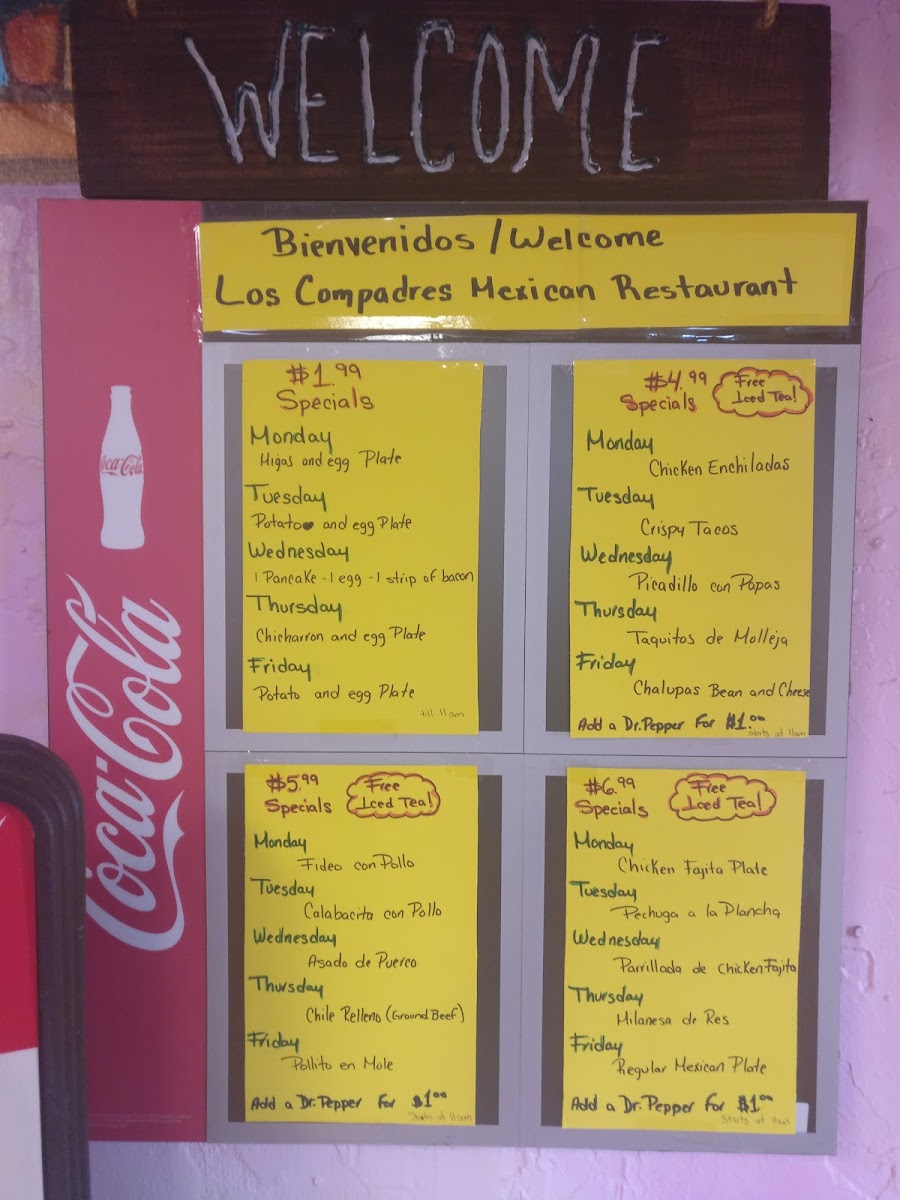 WELCOME
Bienvenidos / Welcome
Los Compadres Mexican Restaurant
Coca-Cola
Coca-Cola
$1.99
Specials
Monday
Migas and egg Plate
Tuesday
Potato and egg Plate
Wednesday
1 Pancake - 1 egg - 1 strip of bacon
Thursday
Chicharron and egg Plate
Friday
Potato and egg Plate
till 11am
$4.99
Specials
Free
Iced Tea!
Monday
Chicken Enchiladas
Tuesday
Crispy Tacos
Wednesday
Picadillo con Papas
Thursday
Taquitos de Molleja
Friday
Chalupas Bean and Cheese
Add a Dr. Pepper For $1.00
starts at 11am
$5.99
Specials
Free
Iced Tea!
Monday
Fideo con Pollo
Tuesday
Calabacita con Pollo
Wednesday
Asado de Puerco
Thursday
Chile Relleno (Ground Beef)
Friday
Pollito en Mole
Add a Dr. Pepper For $1.00
Starts at 11am
$6.99
Specials
Free
Iced Tea!
Monday
Chicken Fajita Plate
Tuesday
Pechuga a la Plancha
Wednesday
Parrillada de Chicken Fajita
Thursday
Milanesa de Res
Friday
Regular Mexican Plate
Add a Dr. Pepper For $1.00
Starts at 11am